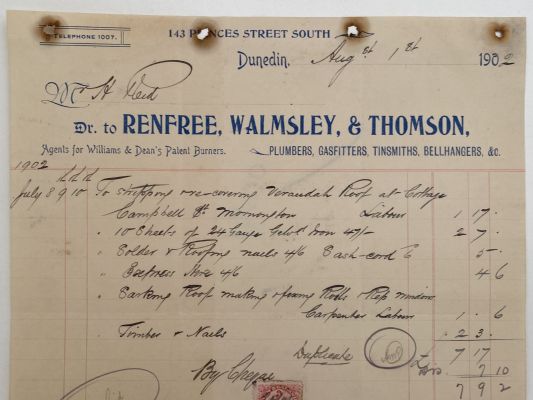 TELEPHONE 1007.
143 PRINCES STREET SOUTH
Dunedin, Augst 1st 1902
Mr H Reid
Dr. to RENFREE, WALMSLEY, & THOMSON,
Agents for Williams & Dean's Patent Burners. PLUMBERS, GASFITTERS, TINSMITHS, BELLHANGERS, &c.
1902
July 8 9 10 To stripping & re-covering Verandah Roof at Cottage
Campbell St Mornington Labour 1 17 .
" 10 Sheets of 24 Gauge Iron 47/- 2 7 .
" Solder & Roofing nails 4/6 Sash-cord 6 5 -
" Express Hire 4/6 4 6
" Roof making & fixing & Rep windows
Carpenter Labour 1 . 6
" Timber & Nails . 2 3 .
Duplicate £ 7 17
7 10
By Cheque 7 9 2